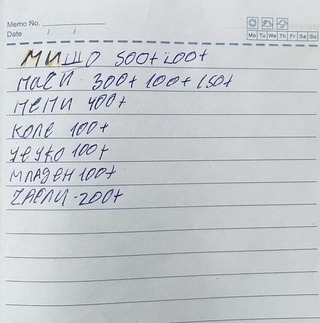 Memo No.
Mo Tu We Th Fr Sa Su
Date / /
МИШО 500+200+
МАЕИ 300+100+150+
МЕМИ 400+
КОЛЕ 100+
ЧЕУКО 100+
МЛАДЕН 100+
ZАЕЛИ -200+